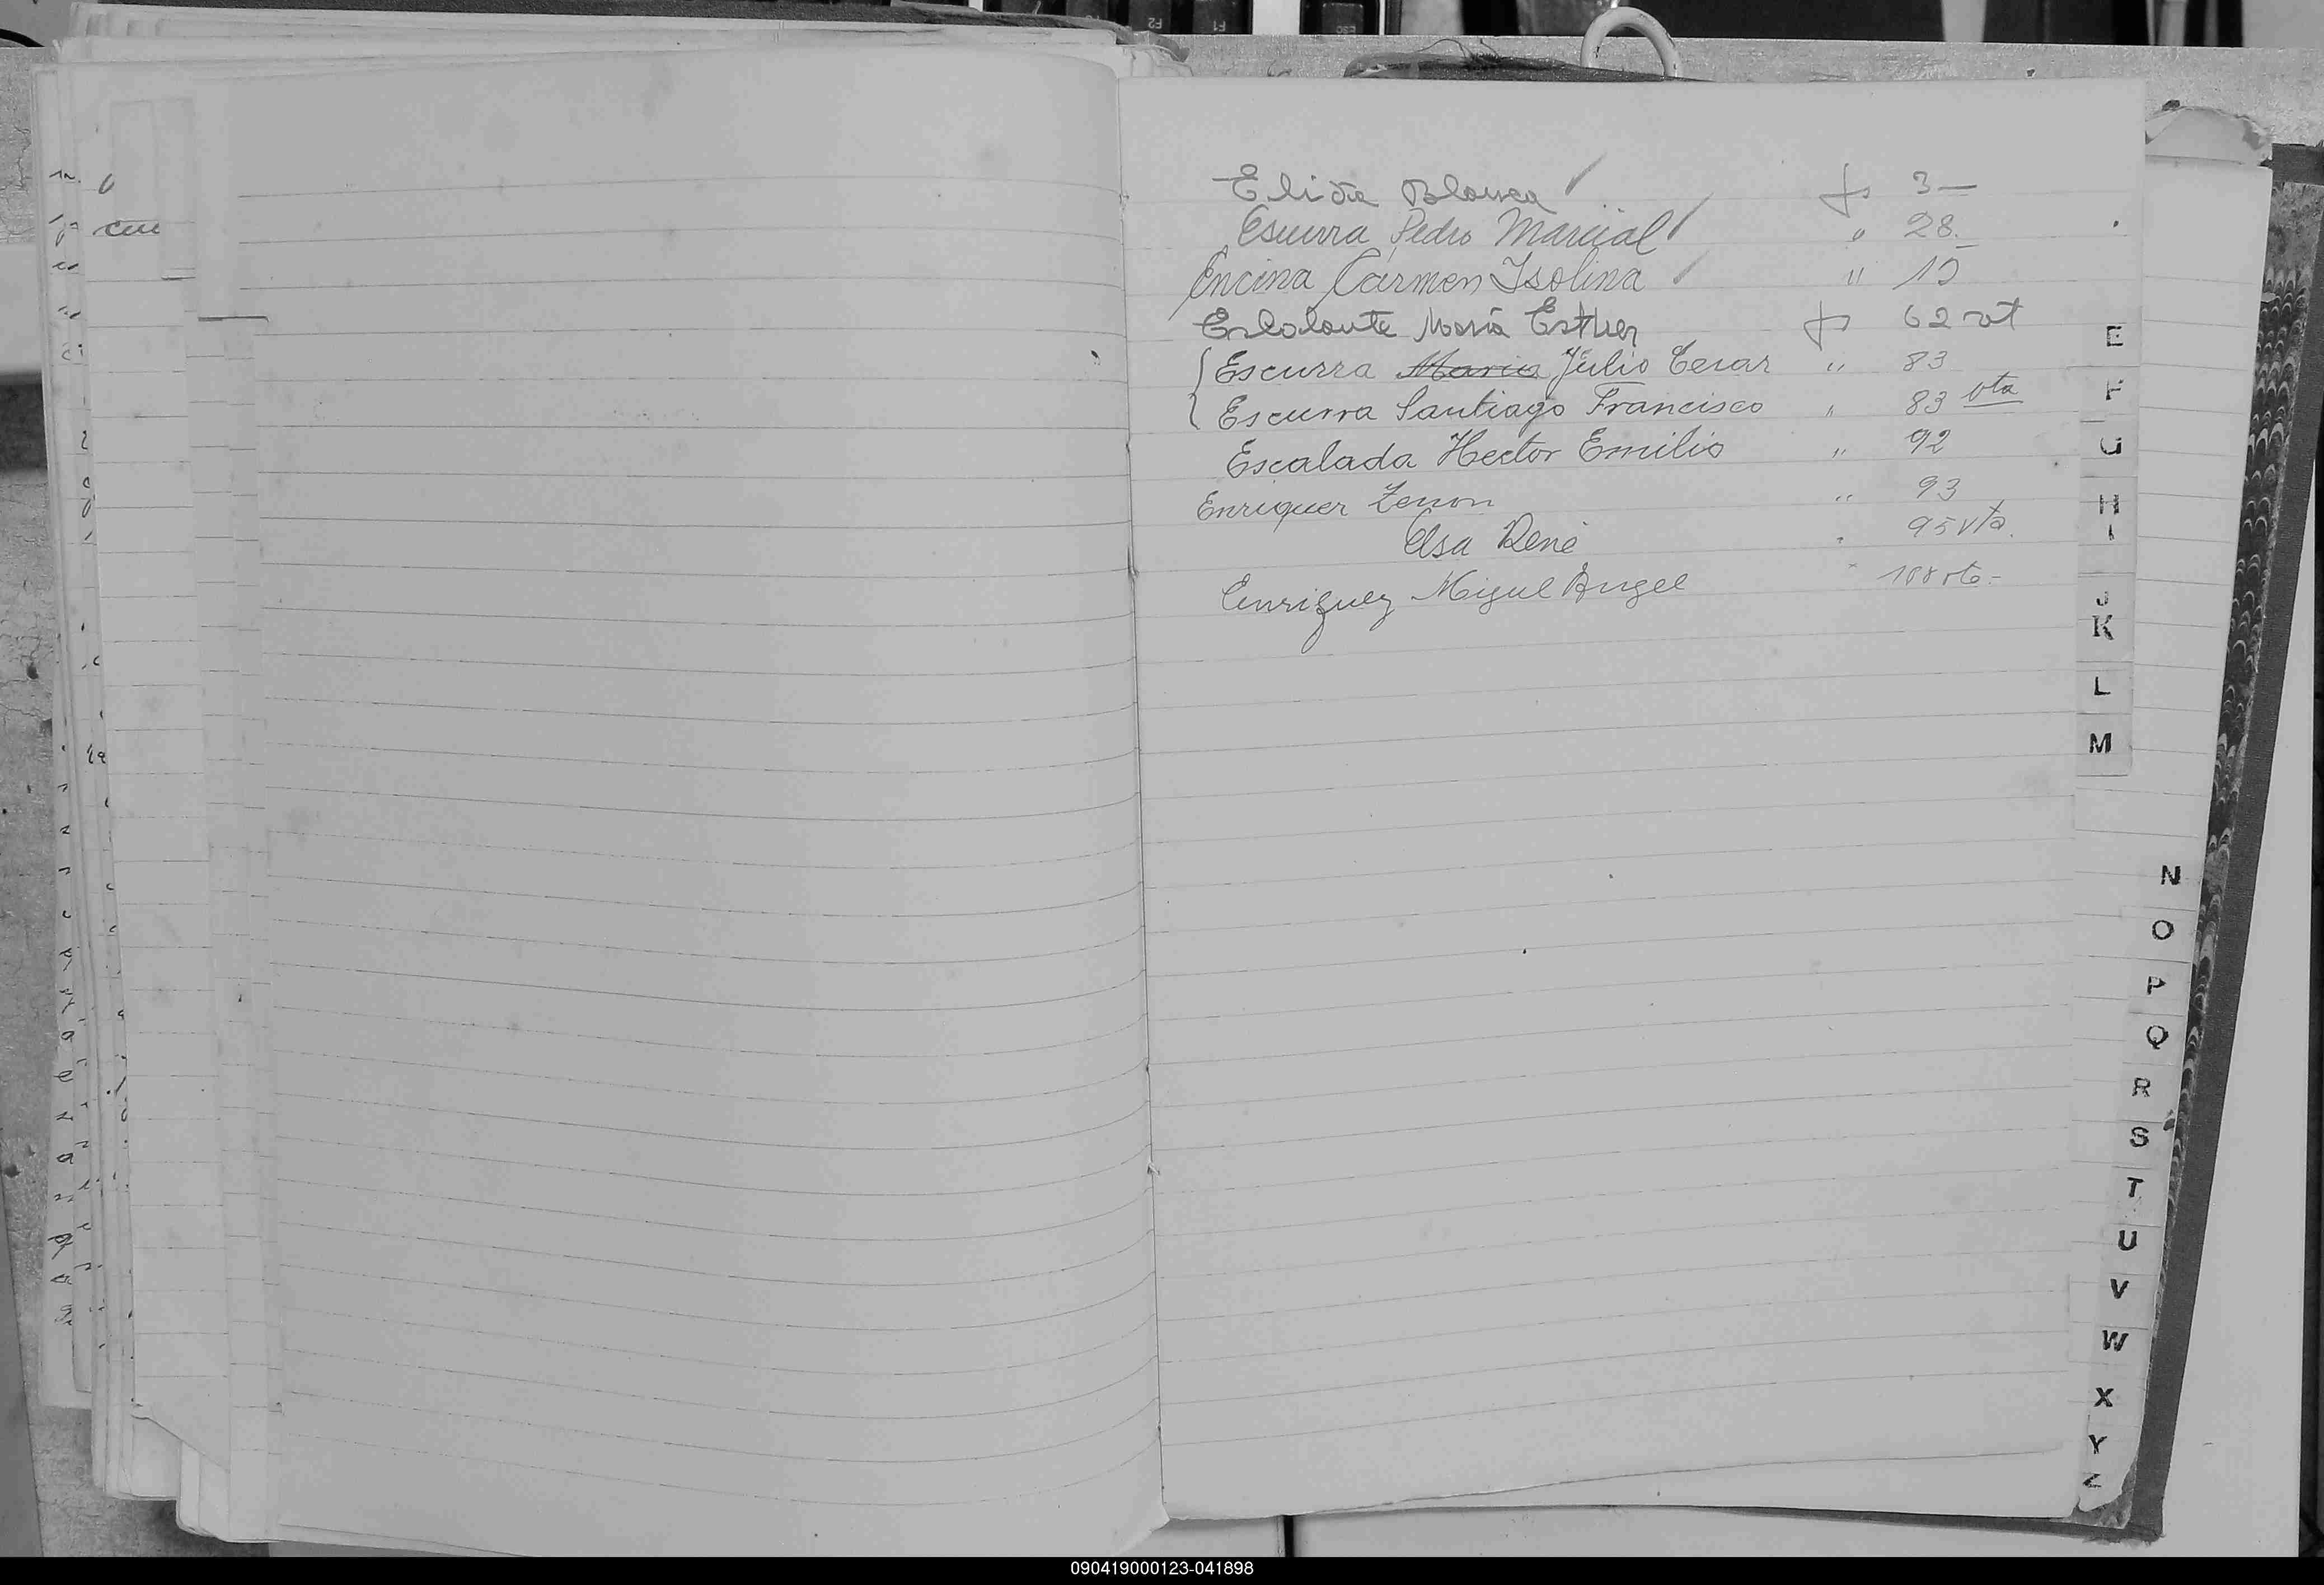 Elida Blanca fs 3 —
Escurra Pedro Marcial " 28.
Encina Carmen Isolina " 15
Escalante María Esther fs 62 vt
Escurra Maria Julio Cesar " 83
Escurra Santiago Francisco " 83 vta
Escalada Hector Emilio " 92
Enriquez Zenon " 93
Elsa René " 95 vta.
Enriquez Miguel Angel " 108 vta-
E
F
G
H
I
J
K
L
M
N
O
P
Q
R
S
T
U
V
W
X
Y
Z
090419000123-041898